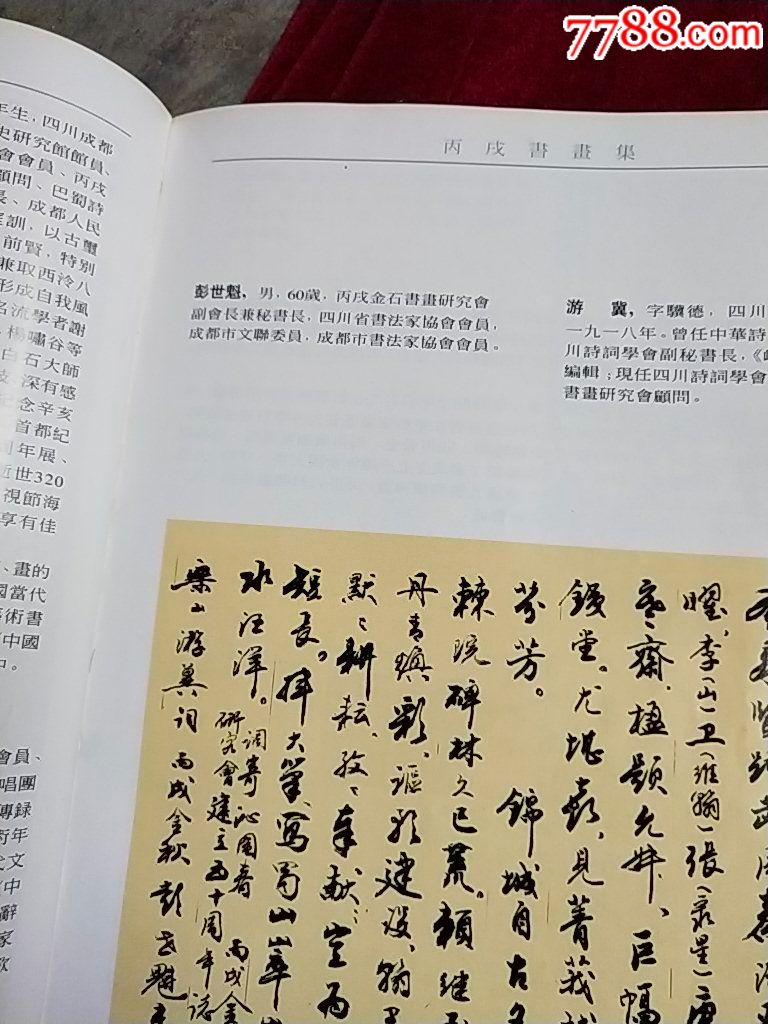 7788.com
丙戌書畫集
年生,四川成都
史研究館館員、
會會員、丙戌
顧問、巴蜀詩
長、成都人民
庭訓,以古璽
前賢,特别
兼取西泠八
形成自我風
名流學者謝
楊嘯谷等
白石大師
技,深有感
紀念辛亥
首都紀
周年展、
近世320
視節海
享有佳
、畫的
國當代
藝術書
中國
中。
會員、
唱團
傳録
術年
代文
中
辭
家
彭世魁,男,60歲,丙戌金石書畫研究會
副會長兼秘書長,四川省書法家協會會員,
成都市文聯委員,成都市書法家協會會員。
游 冀,字驥德,四川
一九一八年。曾任中華詩
川詩詞學會副秘書長,《岷
編輯;現任四川詩詞學會
書畫研究會顧問。
曜。李(山)卫(維翰)張(彔星)唐
老齋,楹顥允升、巨幅
鏝堂。尤堪喜,見菁莪
芬芳。 錦城自古
棘院碑林久已荒。賴继
丹青煥彩,謳歌建设,翰
默默耕耘,孜孜奉献
短長。拜大筆,寫蜀山
水汪洋。調寄沁園春 丙戌金
研究會建立五十周年誌
樂山游冀詞 丙戌金秋彭世魁